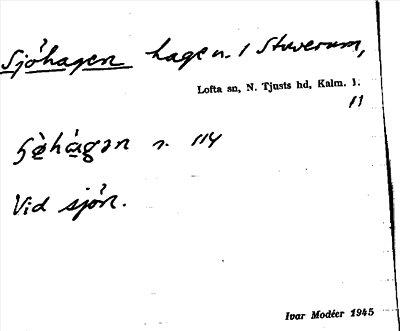 Sjöhagen hage n. 1 Stuverum,
Lofta sn, N. Tjusts hd, Kalm. l.
11
n. 114
Vid sjön.
Ivar Modéer 1945